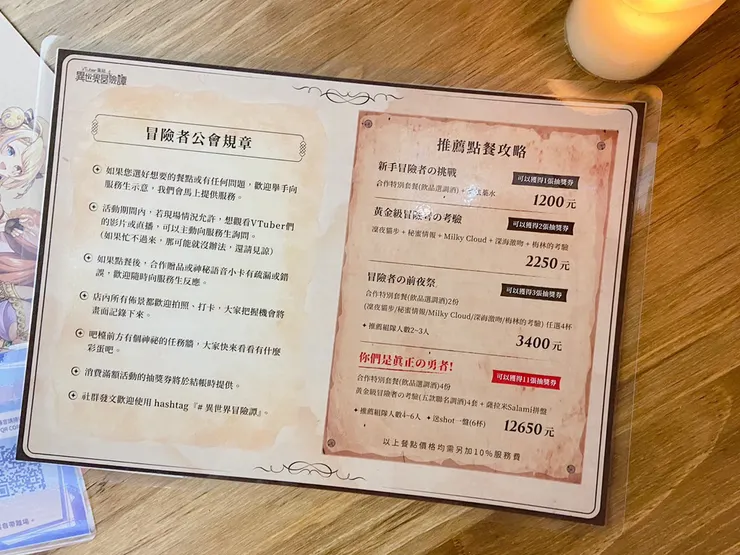 異世界冒險譚
冒險者公會規章
如果您選好想要的餐點或有任何問題，歡迎舉手向
服務生示意，我們會馬上提供服務。
活動期間內，若現場情況允許，想觀看VTuber們
的影片或直播，可以主動向服務生詢問。
(如果忙不過來，那可能就沒辦法，還請見諒)
如果點餐後，合作贈品或神秘語音小卡有疏漏或錯
誤，歡迎隨時向服務生反應。
店內所有佈景都歡迎拍照、打卡，大家把握機會將
畫面記錄下來。
吧檯前方有個神祕的任務牆，大家快來看看有什麼
彩蛋吧。
消費滿額活動的抽獎券將於結帳時提供。
社群發文歡迎使用 hashtag『# 異世界冒險譚』。
推薦點餐攻略
新手冒險者の挑戰
可以獲得1張抽獎券
合作特別套餐(飲品選調酒)
藥水
1200元
黃金級冒險者の考驗
可以獲得2張抽獎券
凜夜貓步 + 秘蜜情報 + Milky Cloud + 深海激吻 + 梅林的考驗
2250元
冒險者の前夜祭
可以獲得3張抽獎券
合作特別套餐(飲品選調酒)2份
(凜夜貓步/秘蜜情報/Milky Cloud/深海激吻/梅林的考驗) 任選4杯
✦ 推薦組隊人數2~3人
3400元
你們是真正の勇者!
可以獲得11張抽獎券
合作特別套餐(飲品選調酒)4份
黃金級冒險者の考驗(五款聯名調酒)4套 + 薩拉米Salami拼盤
✦ 推薦組隊人數4~6人 ✦ 送shot一盤(6杯)
12650元
以上餐點價格均需另加10%服務費